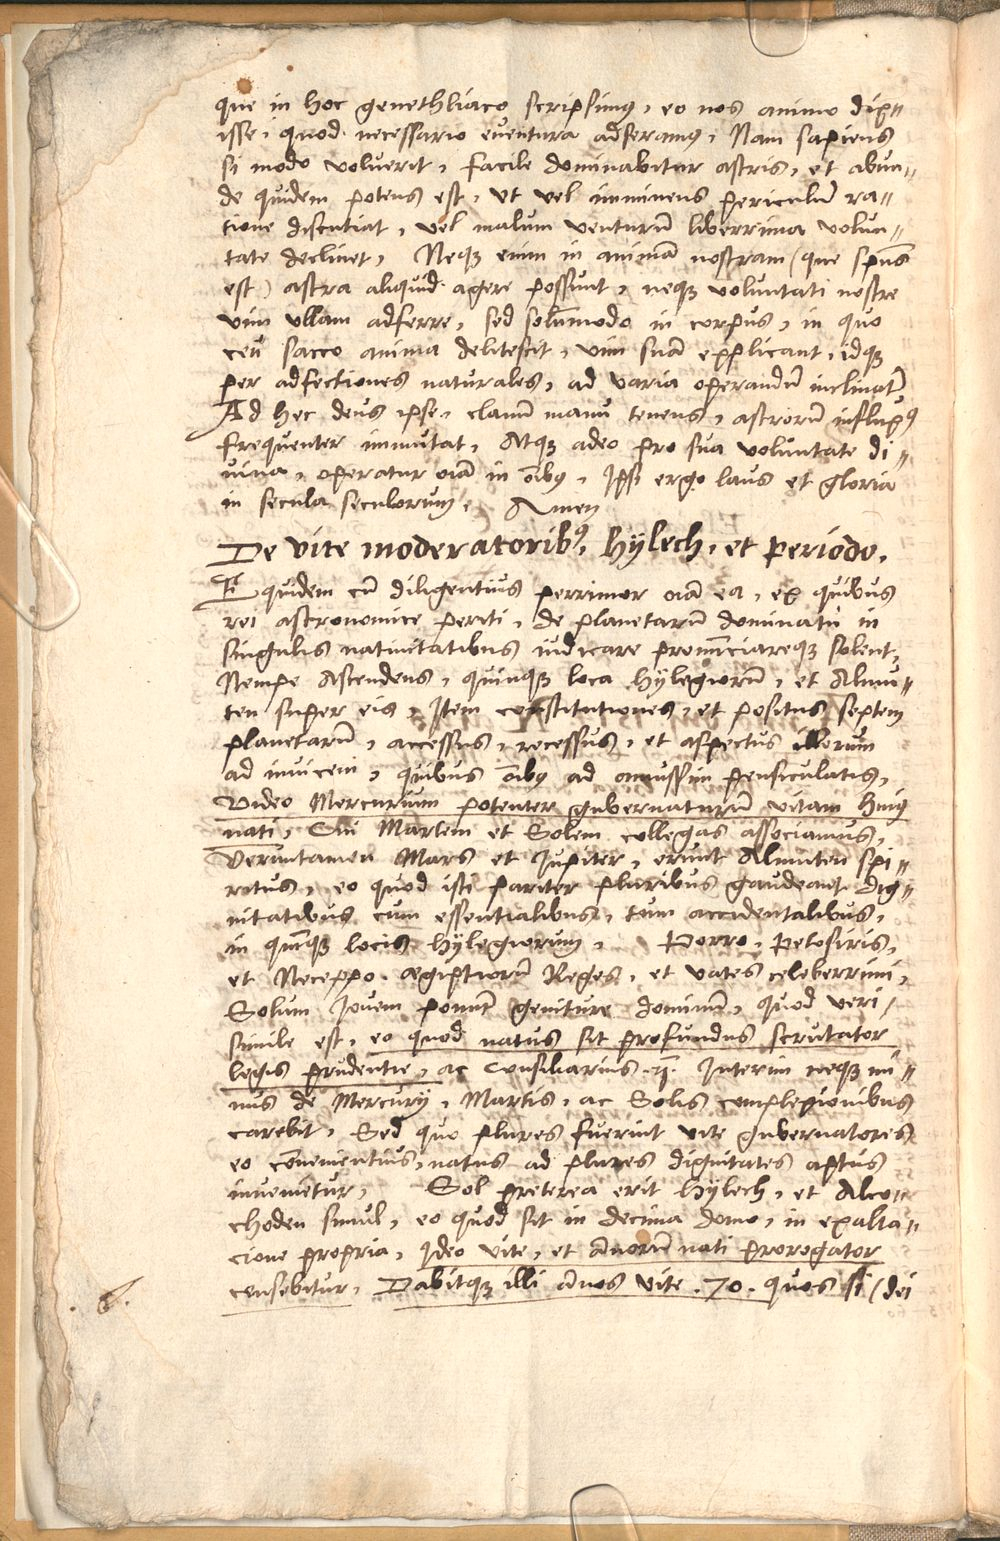 que in hoc genethliaco scripsimꝰ, eo nos animo dix⸗
isse, quod necessario euentura adferamꝰ, Nam sapiens
si modo voluerit, facile dominabitur astris, et abun⸗
de quidem potens est, vt vel imminens periculū ra⸗
tione discutiat, vel malum venturū liberrima volun⸗
tate declinet, Neqꝫ enim in animā nostram (que spūs
est) astra aliquid agere possunt, neqꝫ voluntati nostre
vim vllam adferre, sed solūmodo in corpus, in quo
ceu sacco anima delitescit, vim suā explicant, idqꝫ
per adfectiones naturales, ad varia operandū inclināt
Ad hec deus ipse, clauū manu tenens, astrorū influxꝰ
frequenter immutat, Atqꝫ adeo pro sua voluntate di⸗
uina, operatur oīa in oībꝰ, Ipsi ergo laus et gloria
in secula seculorum, Amen
De vite moderatoribꝰ, hÿlech, et periodo,
Et quidem cū diligentius perrimor oīa ea, ex quibus
rei astronomice periti, de planetarū dominatu in
singulis natiuitatibus iudicare pronūciareqꝫ solent,
Nempe Ascendens, quinqꝫ loca hÿlegiorū, et Almu⸗
ten super eis, Item constitutiones, et positus septem
planetarū, accessus, recessus, et aspectus illorum
ad inuicem, quibus oībꝰ ad amussim pensiculatis,
Video Mercurium potenter gubernaturū vitam huiꝰ
nati, Cui Martem et Solem collegas associamus,
Veruntamen Mars et Jupiter, erunt Almuten spi⸗
ritus, eo quod isti pariter pluribus gaudeant dig⸗
nitatibus cum essentialibus, tum accidentalibus,
in quīqꝫ locis hÿlegiorum, Porro, Petosiris,
et Neceppo. ægiptiorū Reges, et vates celeberrimi,
Solum Jouem ponunt geniture dominū, quod veri⸗
simile est, eo quod natus sit profundus scrutator
legis prudentie, ac Consiliarius Interim neqꝫ mi⸗
nus de Mercurÿ, Martis, ac Solis complexionibus
carebit, Sed quo plures fuerint vite gubernatores
eo cōuenientius, natus ad plures dignitates aptus
inuenietur, Sol preterea erit hÿlech, et Alco⸗
choden simul, eo quod sit in decima domo, in exalta⸗
cione propria, Ideo vite, et ānorū nati prorogator
censebitur, Dabitqꝫ illi ānos vite .70. quos si (dei